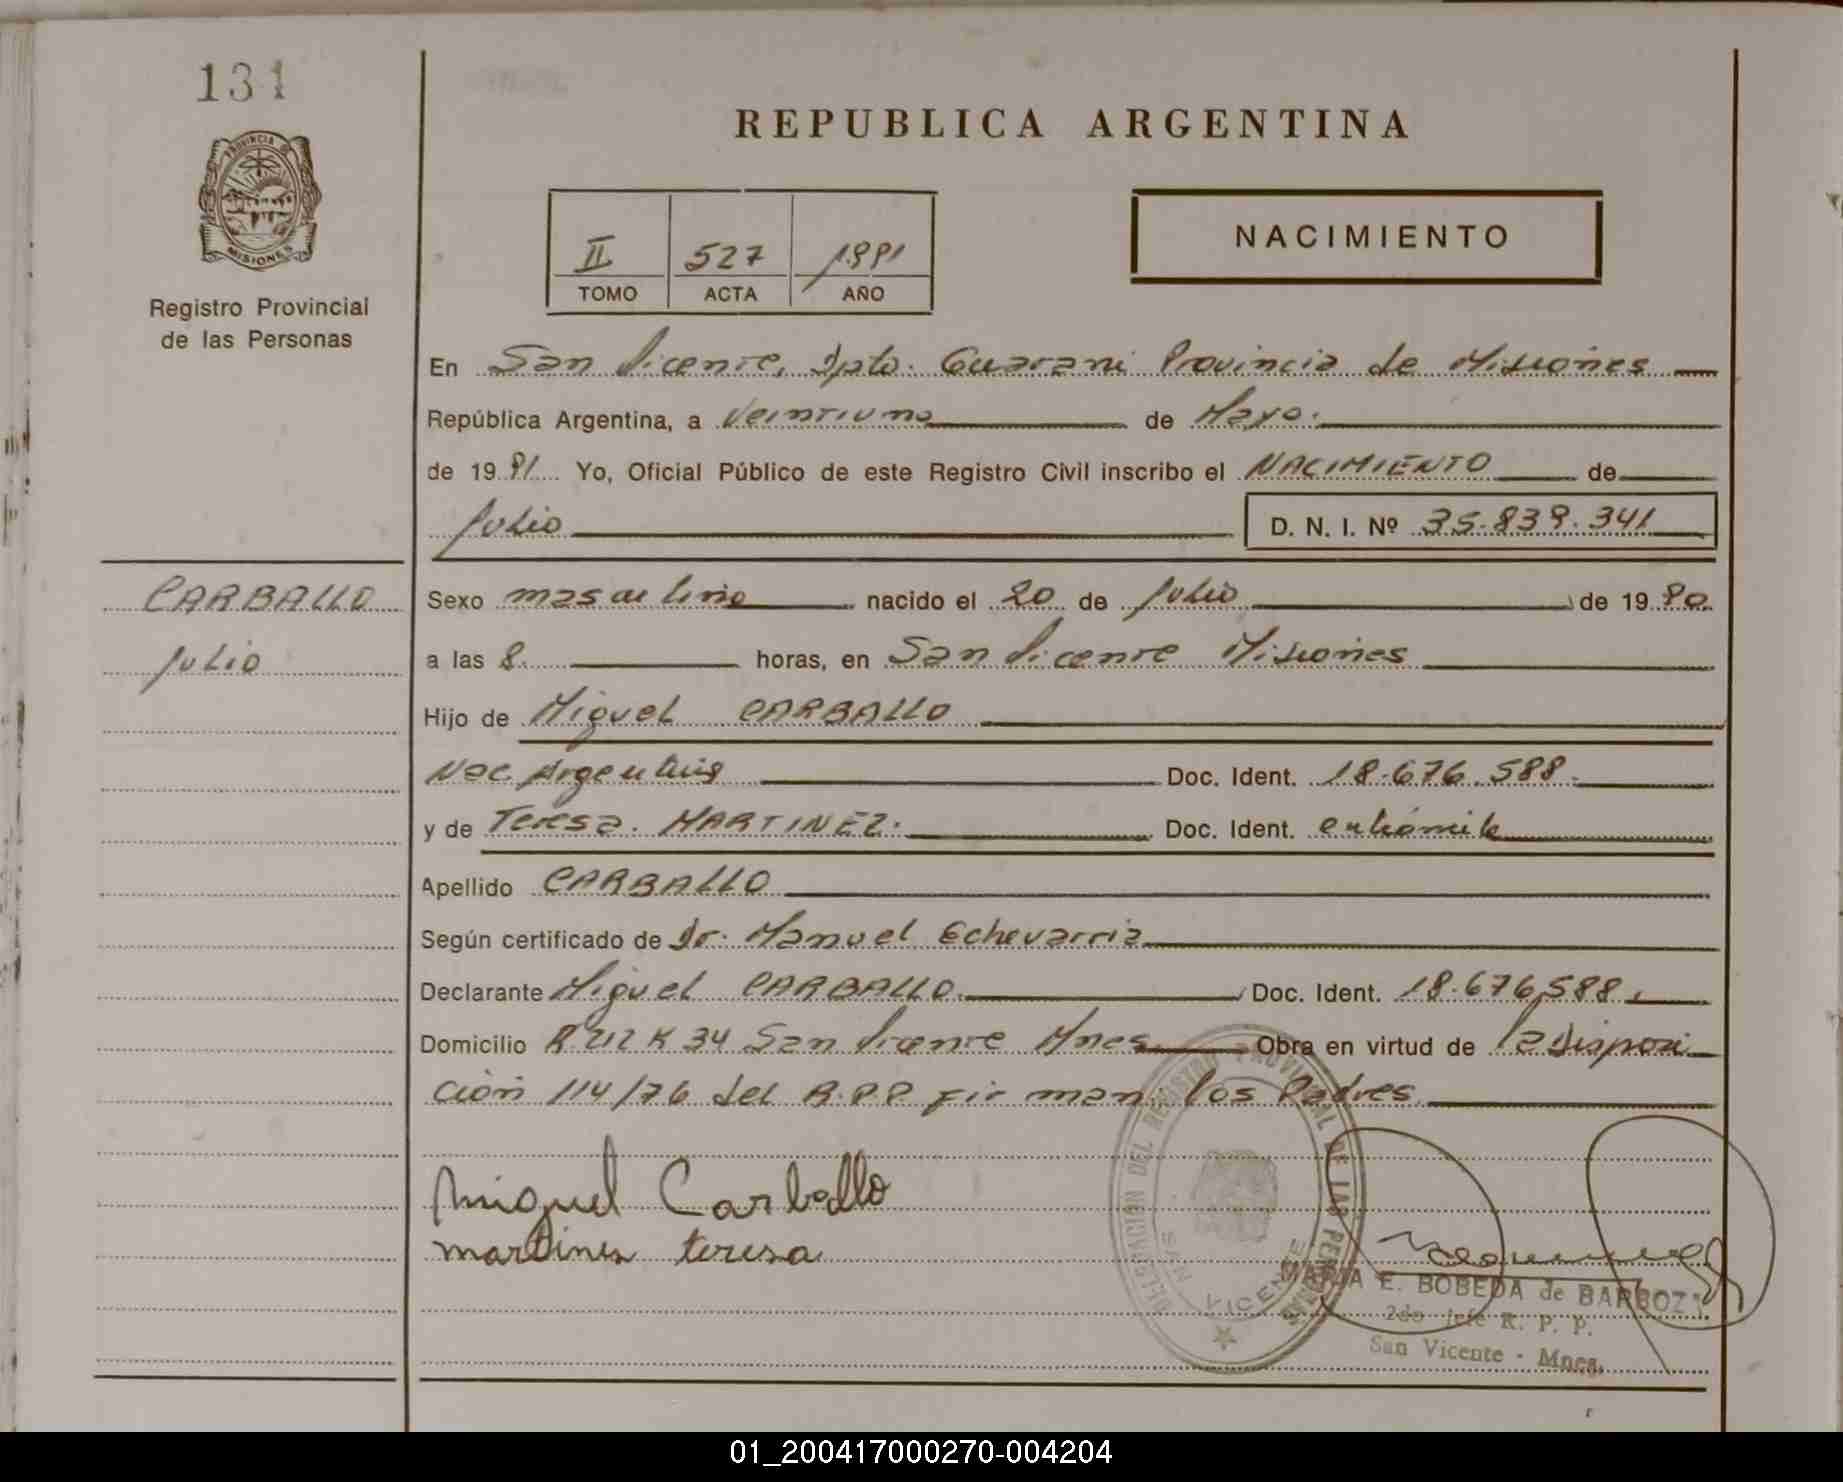 131
REPUBLICA ARGENTINA
PROVINCIA DE
MISIONES
Registro Provincial
de las Personas
NACIMIENTO
II 527 1991
TOMO ACTA AÑO
En San Vicente, Dpto. Guarani Provincia de Misiones
República Argentina, a Veintiuno de Mayo.
de 19 91 Yo, Oficial Público de este Registro Civil inscribo el NACIMIENTO de
Julio D. N. I. Nº 35.839.341
CARBALLO
Julio
Sexo masculino nacido el 20 de Julio de 19 90
a las 8 horas, en San Vicente Misiones
Hijo de Miguel CARBALLO
Nac. Argentina Doc. Ident. 18.676.588.
y de Teresa. MARTINEZ. Doc. Ident.
Apellido CARBALLO
Según certificado de Dr. Manuel Echevarria
Declarante Miguel CARBALLO. Doc. Ident. 18.676.588.
Domicilio R 212 K 34 San Vicente Mnes. Obra en virtud de la disposi
ción 114/76 del R.P.P firman los Padres
Miguel Carballo
martines teresa
DELEGACION DEL REGISTRO PROVINCIAL DE LAS PERSONAS
SAN VICENTE
MARIA E. BOBEDA de BARBOZA
2do Jefe R. P. P.
San Vicente - Mnes.
01_200417000270-004204